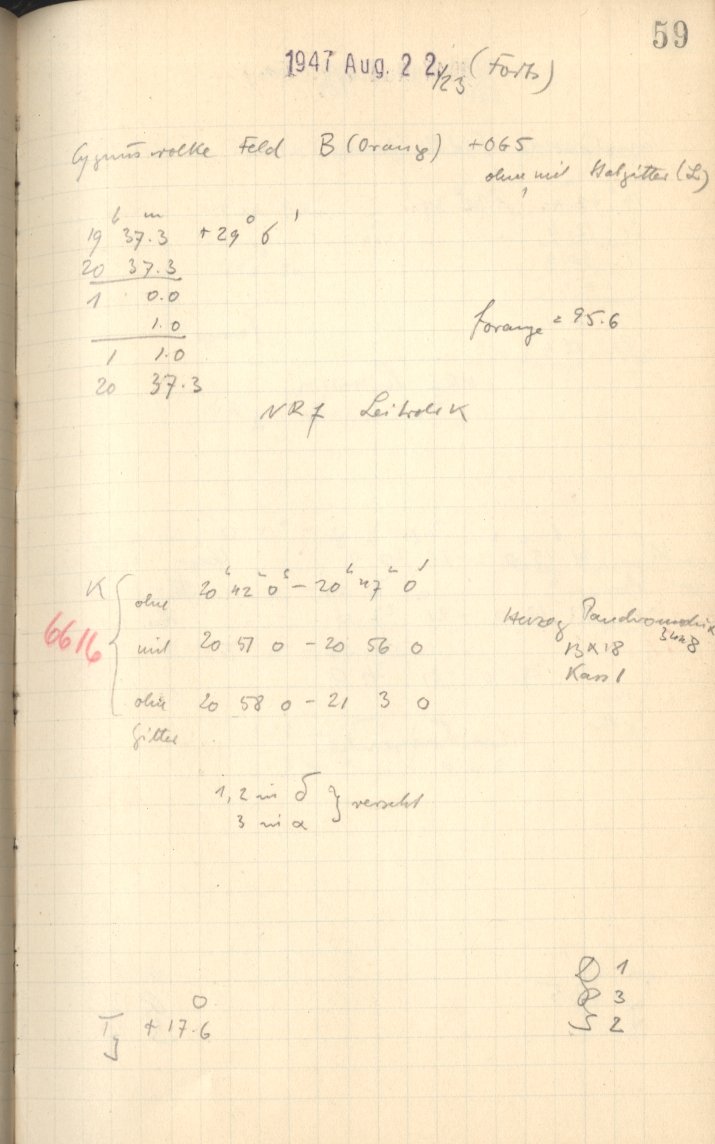 59
1947 Aug. 22./23 (Forts)
Cygnuswolke Feld B (Orange) +065
ohne, mit Halbgitter (Li)
19h 37.3m +29° 6'
20 37.3
1 0.0
1.0
1 1.0
20 37.3
f orange = 95.6
NR 7 Leitwolk
K ohne 20h 42m 0s – 20h 47m 0s
6616
mit 20 51 0 – 20 56 0
ohne 20 58 0 – 21 3 0
Gitter
Herzog Panchromatik
BK 18
Kass 1
1, 2 in δ } versetzt
3 in α
T +17.6°
1
3
S 2